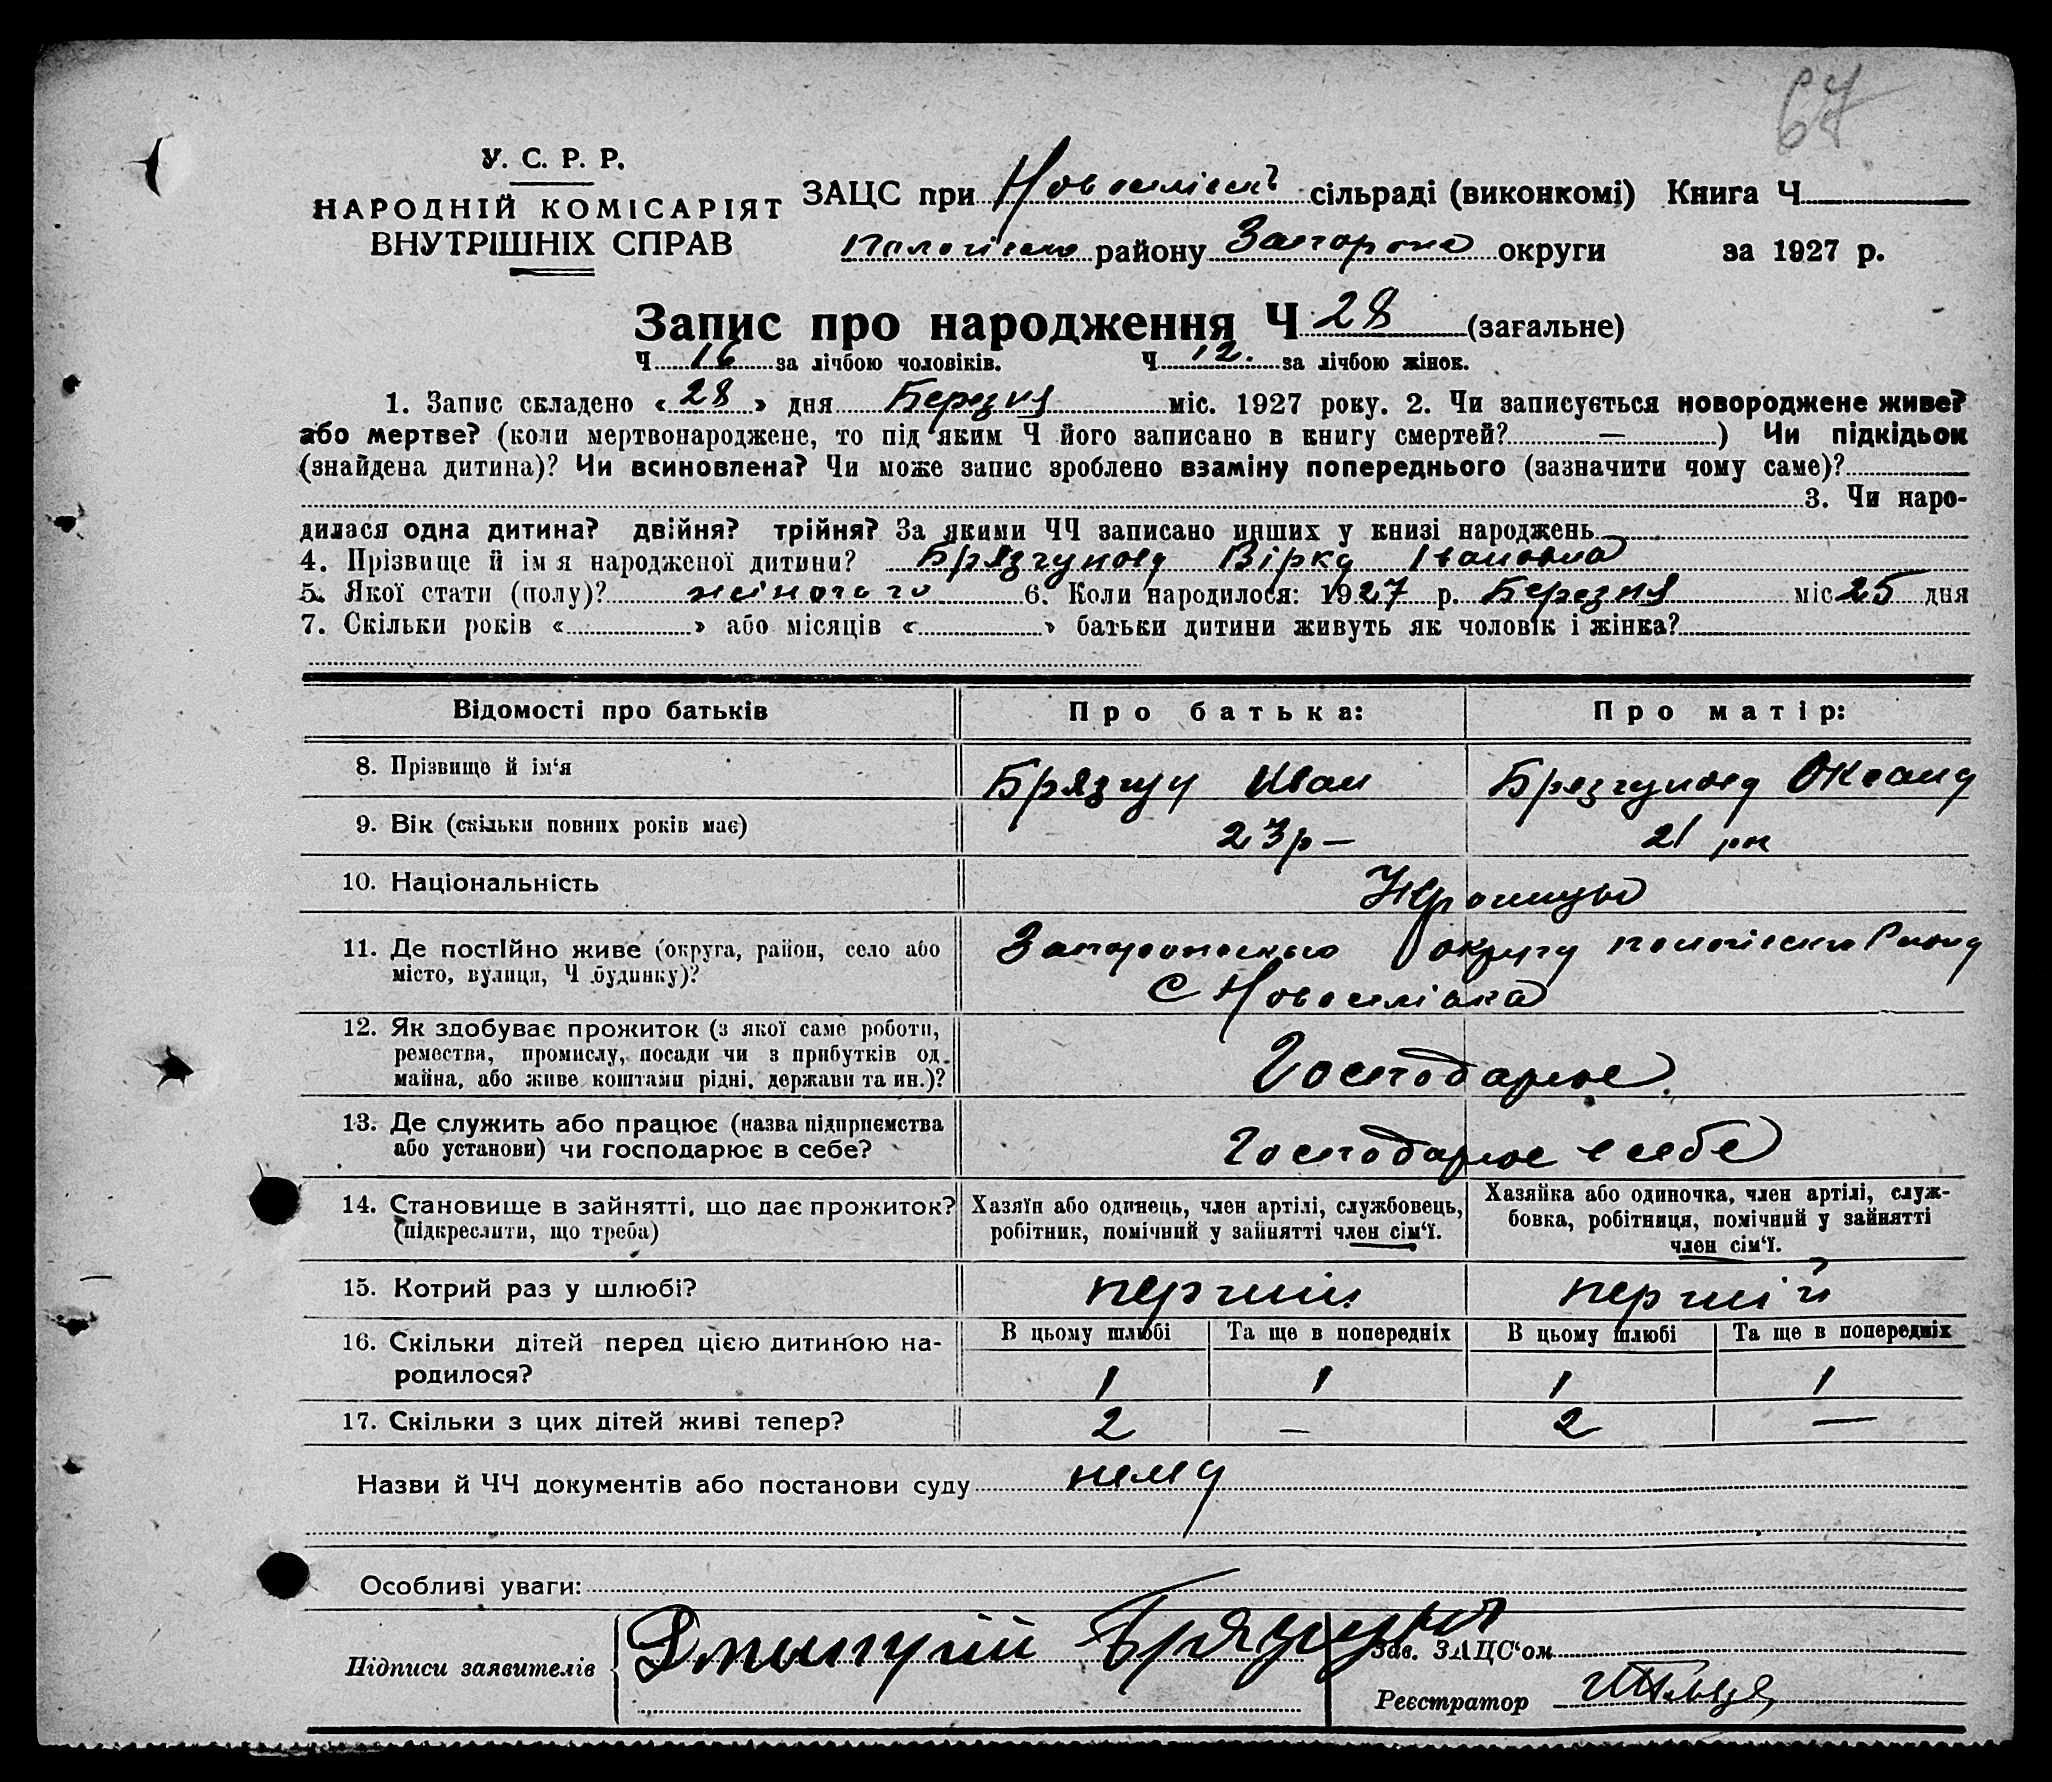 67
У. С. Р. Р.
НАРОДНІЙ КОМІСАРІЯТ
ВНУТРІШНІХ СПРАВ
ЗАЦС при сільраді (виконкомі) Книга Ч
району округи за 1927 р.
Запис про народження Ч 28 (загальне)
Ч 16 за лічбою чоловіків. Ч 12. за лічбою жінок.
1. Запис складено « 28 » дня Березня міс. 1927 року. 2. Чи записується новороджене живе?
або мертве? (коли мертвонароджене, то під яким Ч його записано в книгу смертей? — ) Чи підкідьок
(знайдена дитина)? Чи всиновлена? Чи може запис зроблено взаміну попереднього (зазначити чому саме)?
3. Чи наро-
дилася одна дитина? двійня? трійня? За якими ЧЧ записано инших у книзі народжень
4. Прізвище й імя народженої дитини? Брязгунова Вірка Івановна
5. Якої стати (полу)? жіночого 6. Коли народилося: 1927 р. Березня міс 25 дня
7. Скільки років « » або місяців « » батьки дитини живуть як чоловік і жінка?
Відомості про батьків Про батька: Про матір:
8. Прізвище й ім‘я Брязгун Иван Брязгунова Оксана
9. Вік (скільки повних років має) 23 р — 21 рік
10. Національність
11. Де постійно живе (округа, район, село або округу
місто, вулиця, Ч будинку)? С Новоселівка
12. Як здобуває прожиток (з якої саме роботи,
ремества, промислу, посади чи з прибутків од
майна, або живе коштами рідні, держави та ин.)? Господарює.
13. Де служить або працює (назва підприємства
або установи) чи господарює в себе? Господарює в себе
14. Становище в зайнятті, що дає прожиток? Хазяїн або одинець, член артілі, службовець, Хазяйка або одиночка, член артілі, служ-
(підкреслити, що треба) робітник, помічний у зайнятті член сім‘ї. бовка, робітниця, помічний у зайнятті
член сім‘ї.
15. Котрий раз у шлюбі? перший перший
16. Скільки дітей перед цією дитиною на- В цьому шлюбі Та ще в попередніх В цьому шлюбі Та ще в попередніх
родилося? 1 1 1 1
17. Скільки з цих дітей живі тепер? 2 — 2 —
Назви й ЧЧ документів або постанови суду нема
Особливі уваги:
Підписи заявителів Зав. ЗАЦС‘ом
Реєстратор